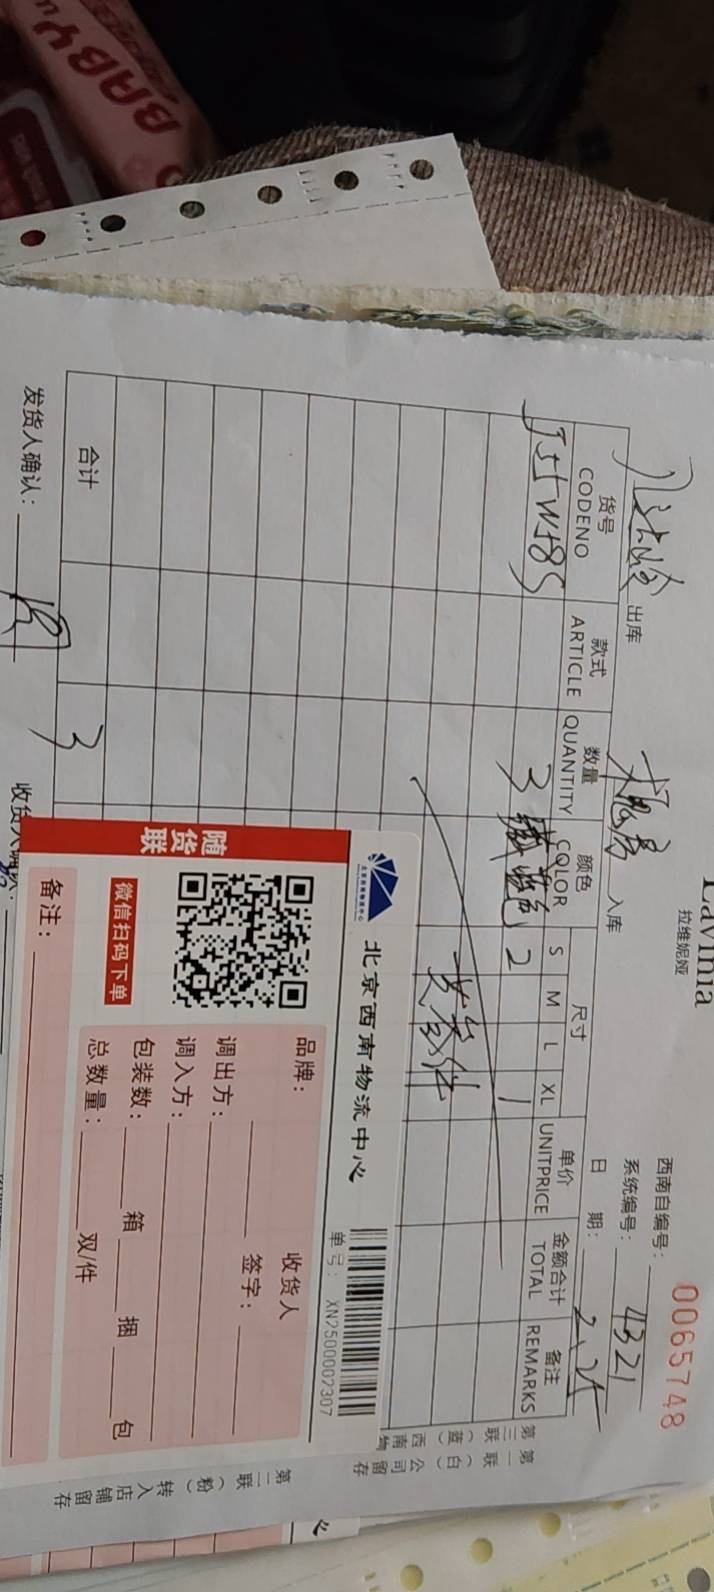 Lavinia
拉维妮娅
西南自编号： 0065748
系统编号： 4321
出库 入库 日 期： 2.25
货号 款式 数量 颜色 尺寸 单价 金额合计 备注
CODENO ARTICLE QUANTITY COLOR S M L XL UNITPRICE TOTAL REMARKS
3 2 1
共叁件
合计 3
发货人确认：
收货人确认：
第一联（白）公司留存
第二联（粉）转入店铺留存
第三联（蓝）西南物
北京西南物流中心
单号： XN2500002307
随货联
微信扫码下单
品牌： 收货人
签字：
调出方：
调入方：
包装数： 箱 捆 包
总数量： 双/件
备注：
BABY